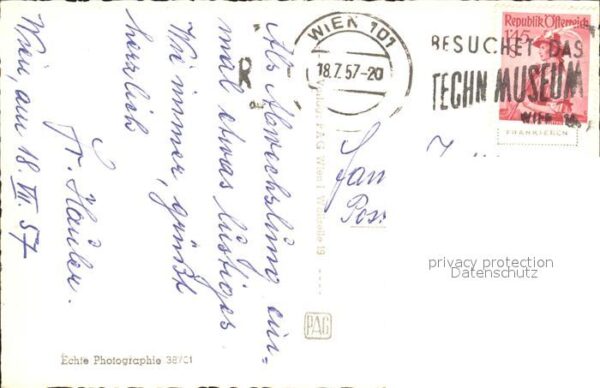 Als Abwechslung ein-
mal etwas lustiges.
Wie immer, grüßt
herzlich
Fr. Häusler.
Wien, am 18. VII. 57
WIEN 101
18.7.57-20
BESUCHET DAS
TECHN MUSEUM
WIEN
Republik Österreich
1.45
FRANKIEREN
Verlag PAG Wien I
19
PAG
Echte Photographie
privacy protection
Datenschutz